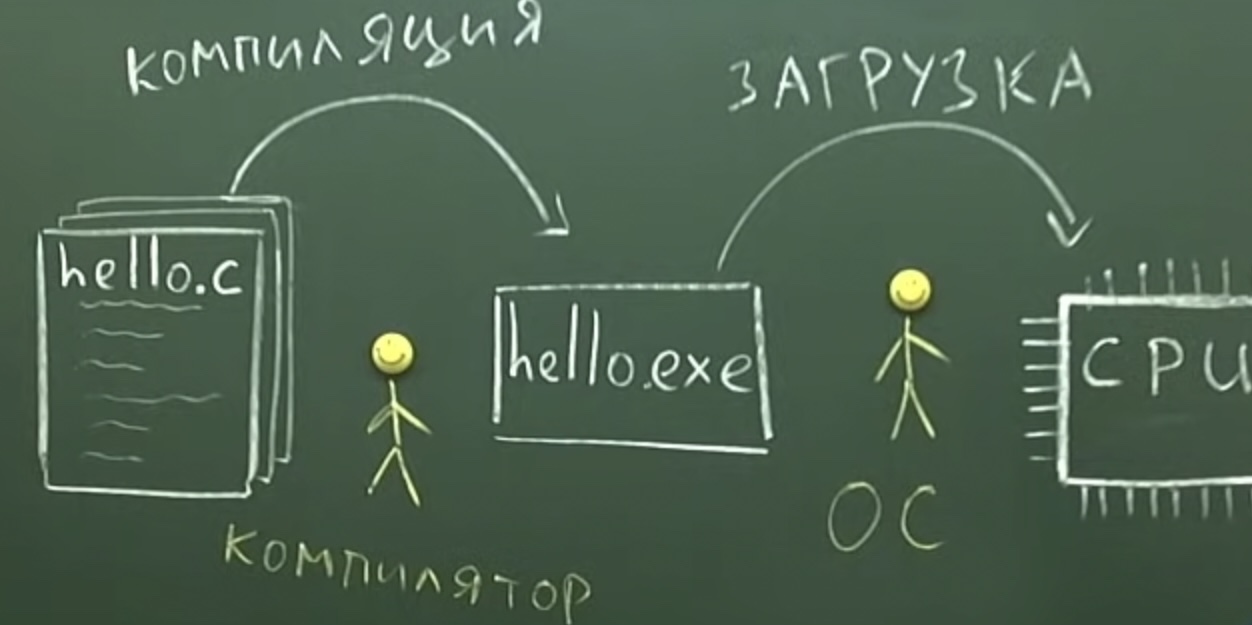 компиляция
ЗАГРУЗКА
hello.c
hello.exe
CPU
компилятор
ОС